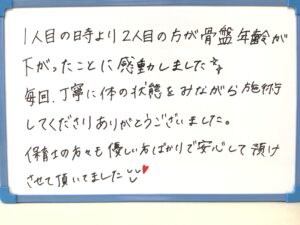 1人目の時より2人目の方が骨盤年齢が
下がったことに感動しました
毎回、丁寧に体の状態をみながら施術
してくださりありがとうございました。
保育士の方々も優しい方ばかりで安心して預け
させて頂いてました